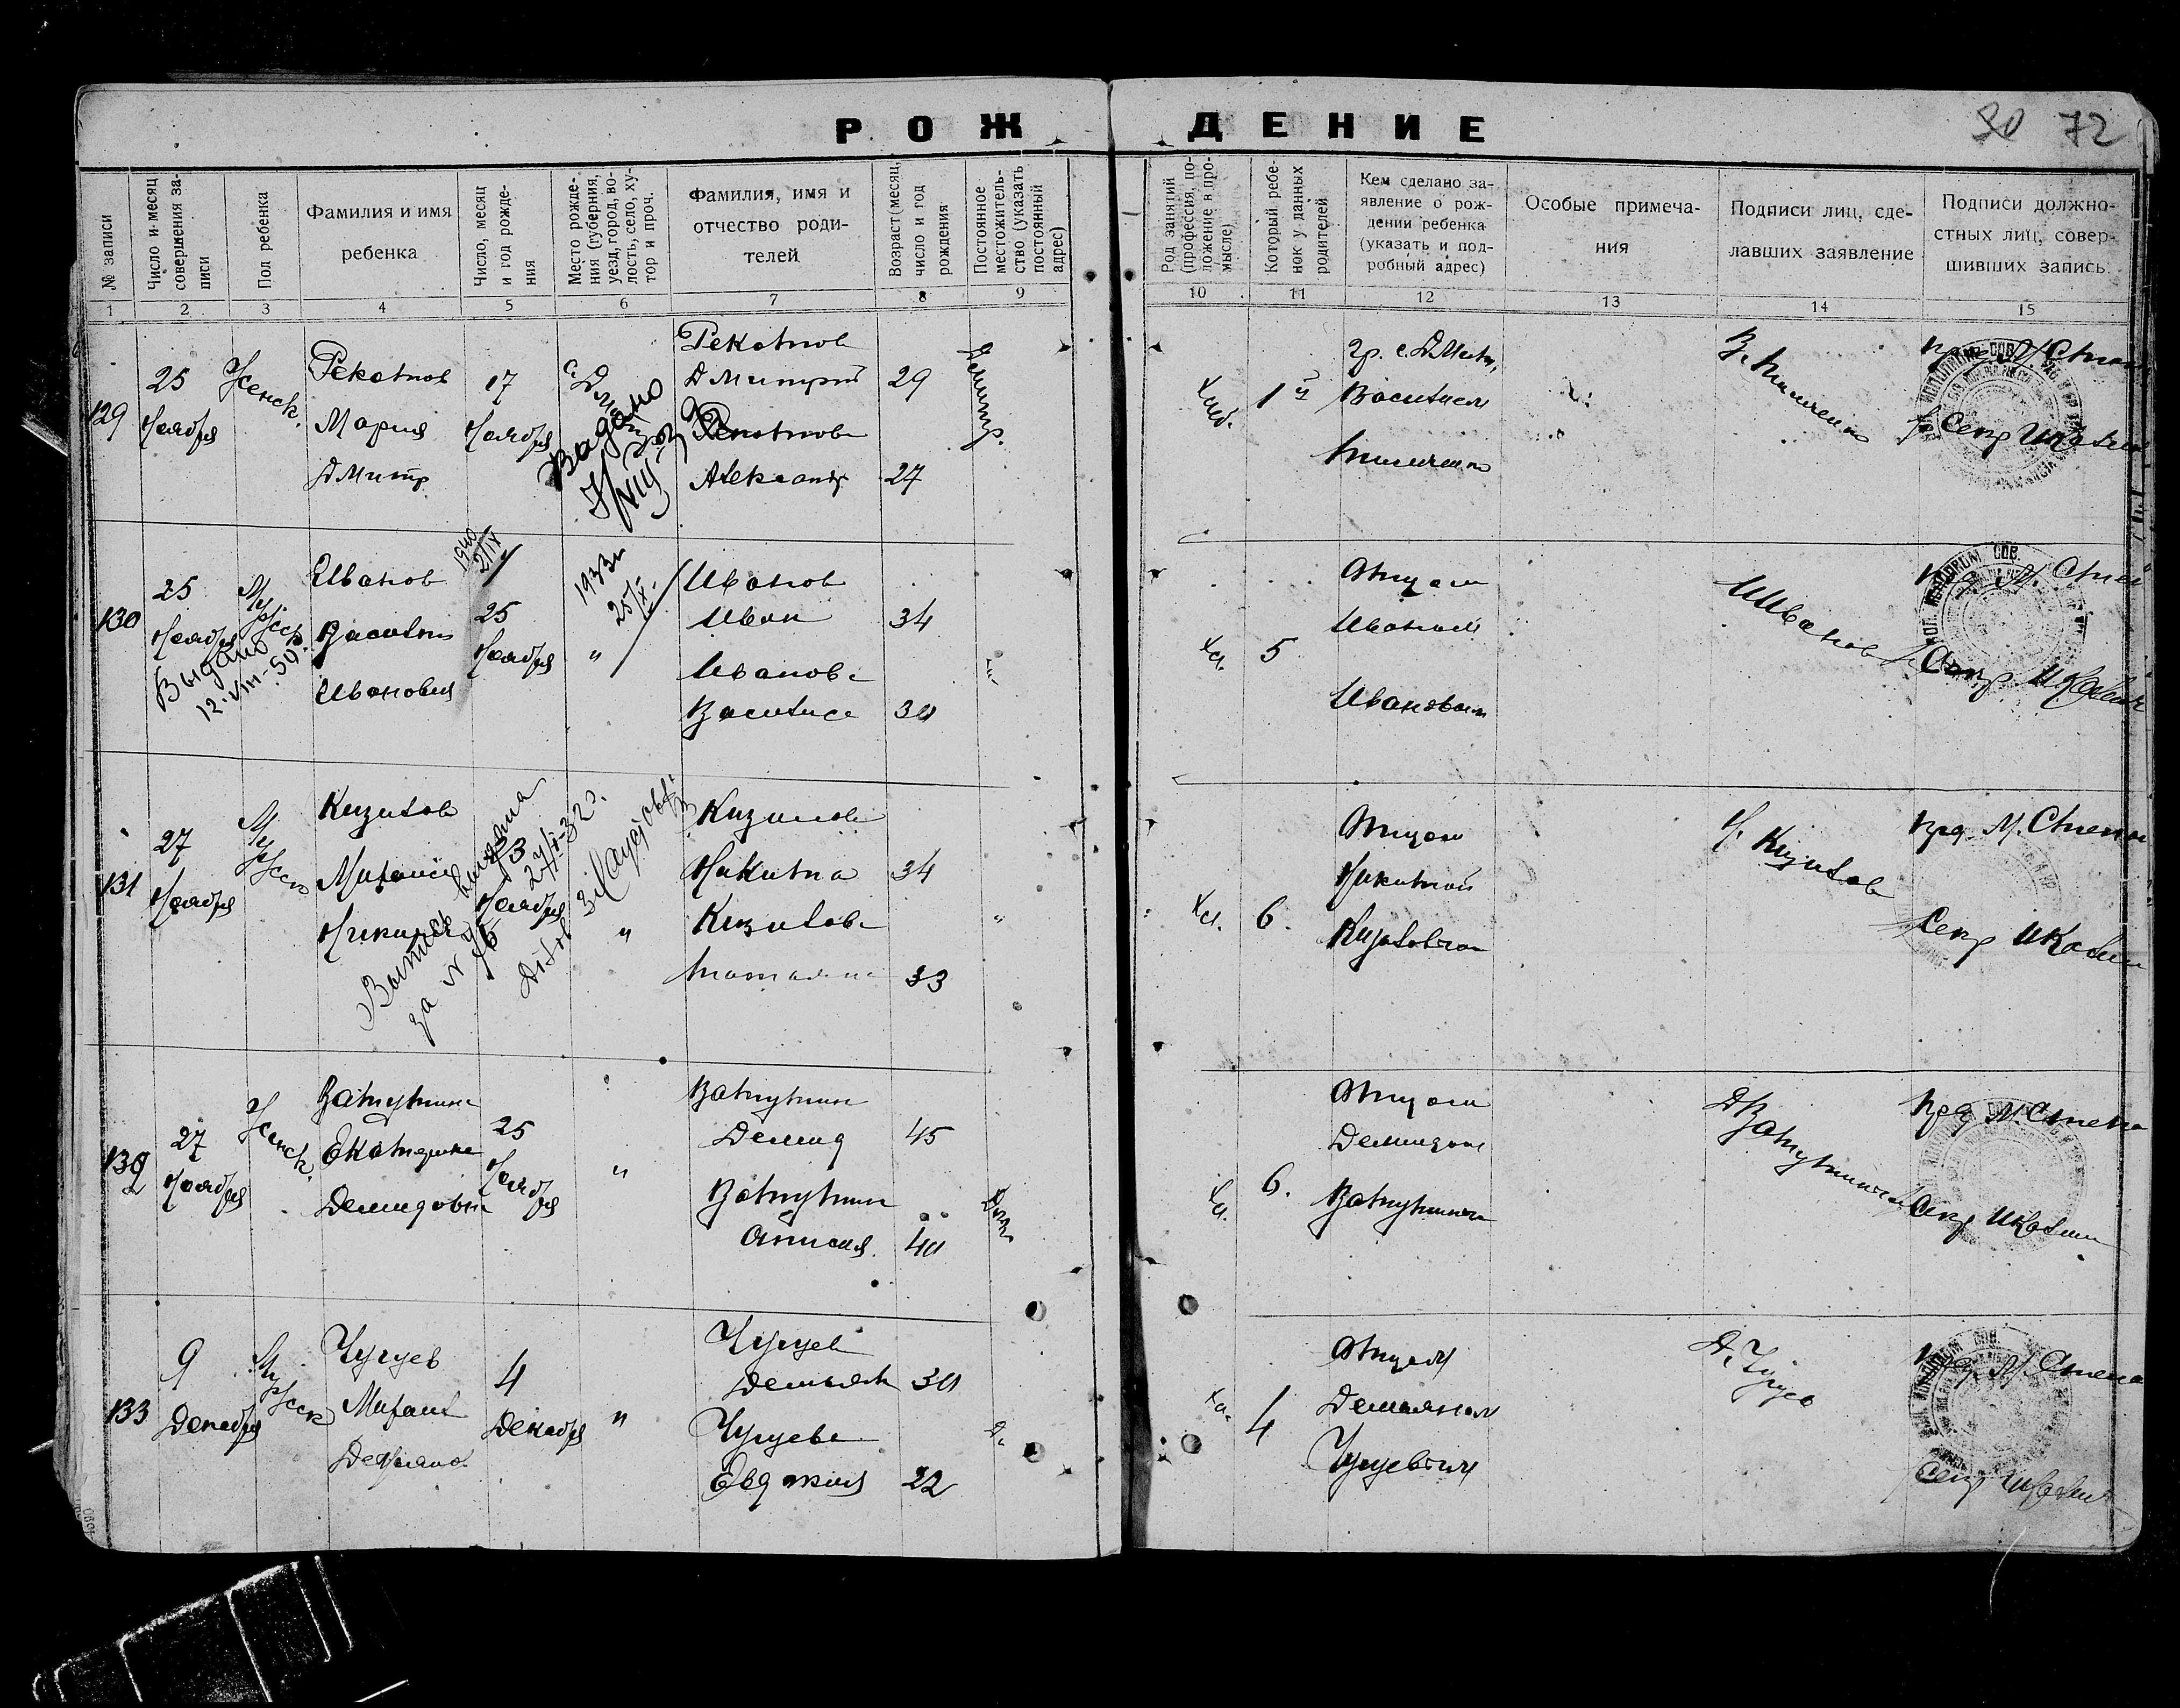 РОЖДЕНИЕ
90 72
№ записи
Число и месяц совершения записи
Пол ребенка
Фамилия и имя ребенка
Число, месяц и год рождения
Место рождения (губерния, уезд, город, волость, село, хутор и проч.
Фамилия, имя и отчество родителей
Возраст (месяц, число и год рождения
Постоянное местожительство (указать постоянный адрес)
Род занятий (профессия, положение в промысле)
Который ребенок у данных родителей
Кем сделано заявление о рождении ребенка (указать и подробный адрес)
Особые примечания
Подписи лиц, сделавших заявление
Подписи должностных лиц, совершивших запись
1 2 3 4 5 6 7 8 9 10 11 12 13 14 15
129
25
Ноября
Женск.
Рекотнов
Мария
Дмитр.
17
Ноября
Рекотнов
Дмитрий
29
Рекотнова
Александр
27
Хлеб.
1й
гр. с. Дмитр,
Василием
130
25
Ноября
Выдано
12.VIII-50
Мужск.
Иванов
Василий
Иванович
1940
2/IX
25
Ноября
1933г
25/X.
"
Иванов
Иван
34
Иванова
Василиса
30
Хл.
5
Отцом
Иваном
Ивановым
ИИванов
131
27
Ноября
Мужск
Кизилов
Михаил
Никит
Выпись выдана
за №
Ноября
27/I-32г.
"
Кизилов
Никита
34
Кизилова
33
"
Хл.
6.
Отцом
Никитой
Кизиловым
Н. Кизилов
прд. М. Степа
Секр
132
27
Ноября
Женск.
Ватутина
Екатерина
Демидовна
25
Ноября
"
Ватутин
Демид
45
Ватутина
Анисия
40
Хл.
6.
Отцом
Демидом
Ватутиным
ДВатутин
прд М. Степа
Секр
133
9
Декабря
Мужск
Чугуев
Михаил
4
Декабря
"
Чугуев
Демьян
30
Чугуева
Евдокия
22
Хл.
4
Отцом
Демьяном
Чугуевым
Д. Чугуев
Секр